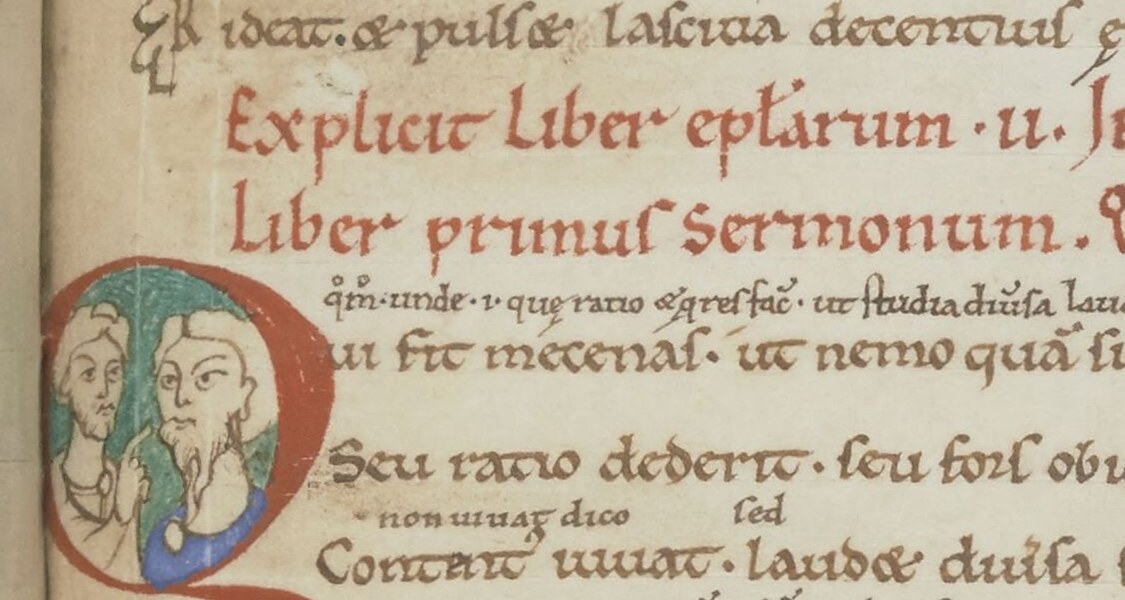 Rideat. & pulset lasciua decentius ę
Explicit Liber epłarum · ii. In
Liber primus Sermonum.
qm̊. unde · i· quę ratio & qres fac̄ · ut studia diũsa lau
Qui fit mecenas. ut nemo quā si
Seu ratio dederit. seu fors obi
non uiuat dico sed
Content᾽ uiuat. laudet diuersa